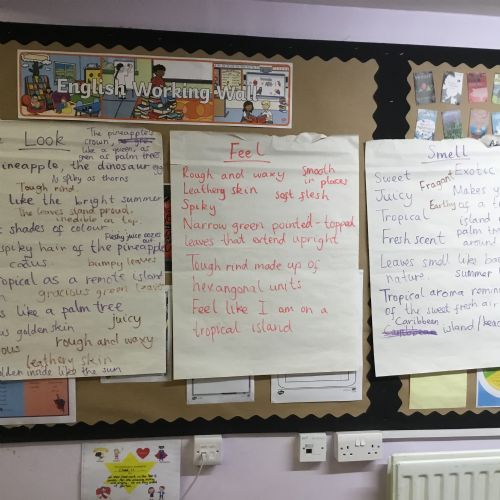 English Working Wall
Look
The pineapple's
crown,
like a queen, as
green as palm trees
pineapple, the dinosaur egg
As spiky as thorns
Tough rind
like the bright summer
The leaves stand proud,
inedible on top
shades of colour
Fleshy juice oozes
out
spiky hair of the pineapple
cactus
bumpy leaves
tropical as a remote island
gracious green leaves
like a palm tree
golden skin
juicy
rough and waxy
leathery skin
golden inside like the sun
Feel
Rough and waxy
Smooth
in places
Leathery skin
soft flesh
Spiky
Narrow green pointed-topped
leaves that extend upright
Tough rind made up of
hexangonal units
Feel like I am on a
tropical island
Smell
Sweet
Fragant
Exotic
Juicy
Makes
Earthy
of a
Tropical
island
palm
Fresh scent
around
Leaves smell like
nature.
summer
Tropical aroma
of the sweet fresh air
Caribbean
island/beach